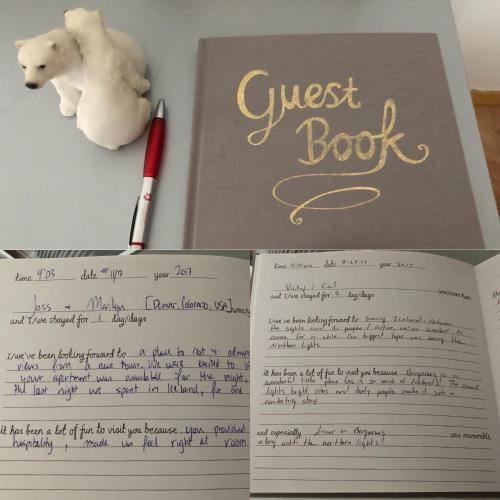 Guest
Book
time 9:03 date 11/7 year 2017
Joss & Marilyn [Denver, Colorado, USA]
and I/we stayed for 1 day/days
I/we've been looking forward to a place to rest & admire
views from a nice town. We were excited to
your apartment was available for the night,
the last night we spent in Iceland, for one
it has been a lot of fun to visit you because you provided
hospitality, made us feel right at room
time date 9-29-17 year 2017
Vicky & Cal
was/were here
and I/we stayed for day/days
I/we've been looking forward to seeing Iceland.
the sights and the people!
come for a while. Our biggest hope was seeing the
Northern lights
it has been a lot of fun to visit you because Borgarnes is a
wonderful little place
lights, bright colors and lovely people made it such a
comforting stay.
and especially in Borgarnes was memorable
along with the northern lights!